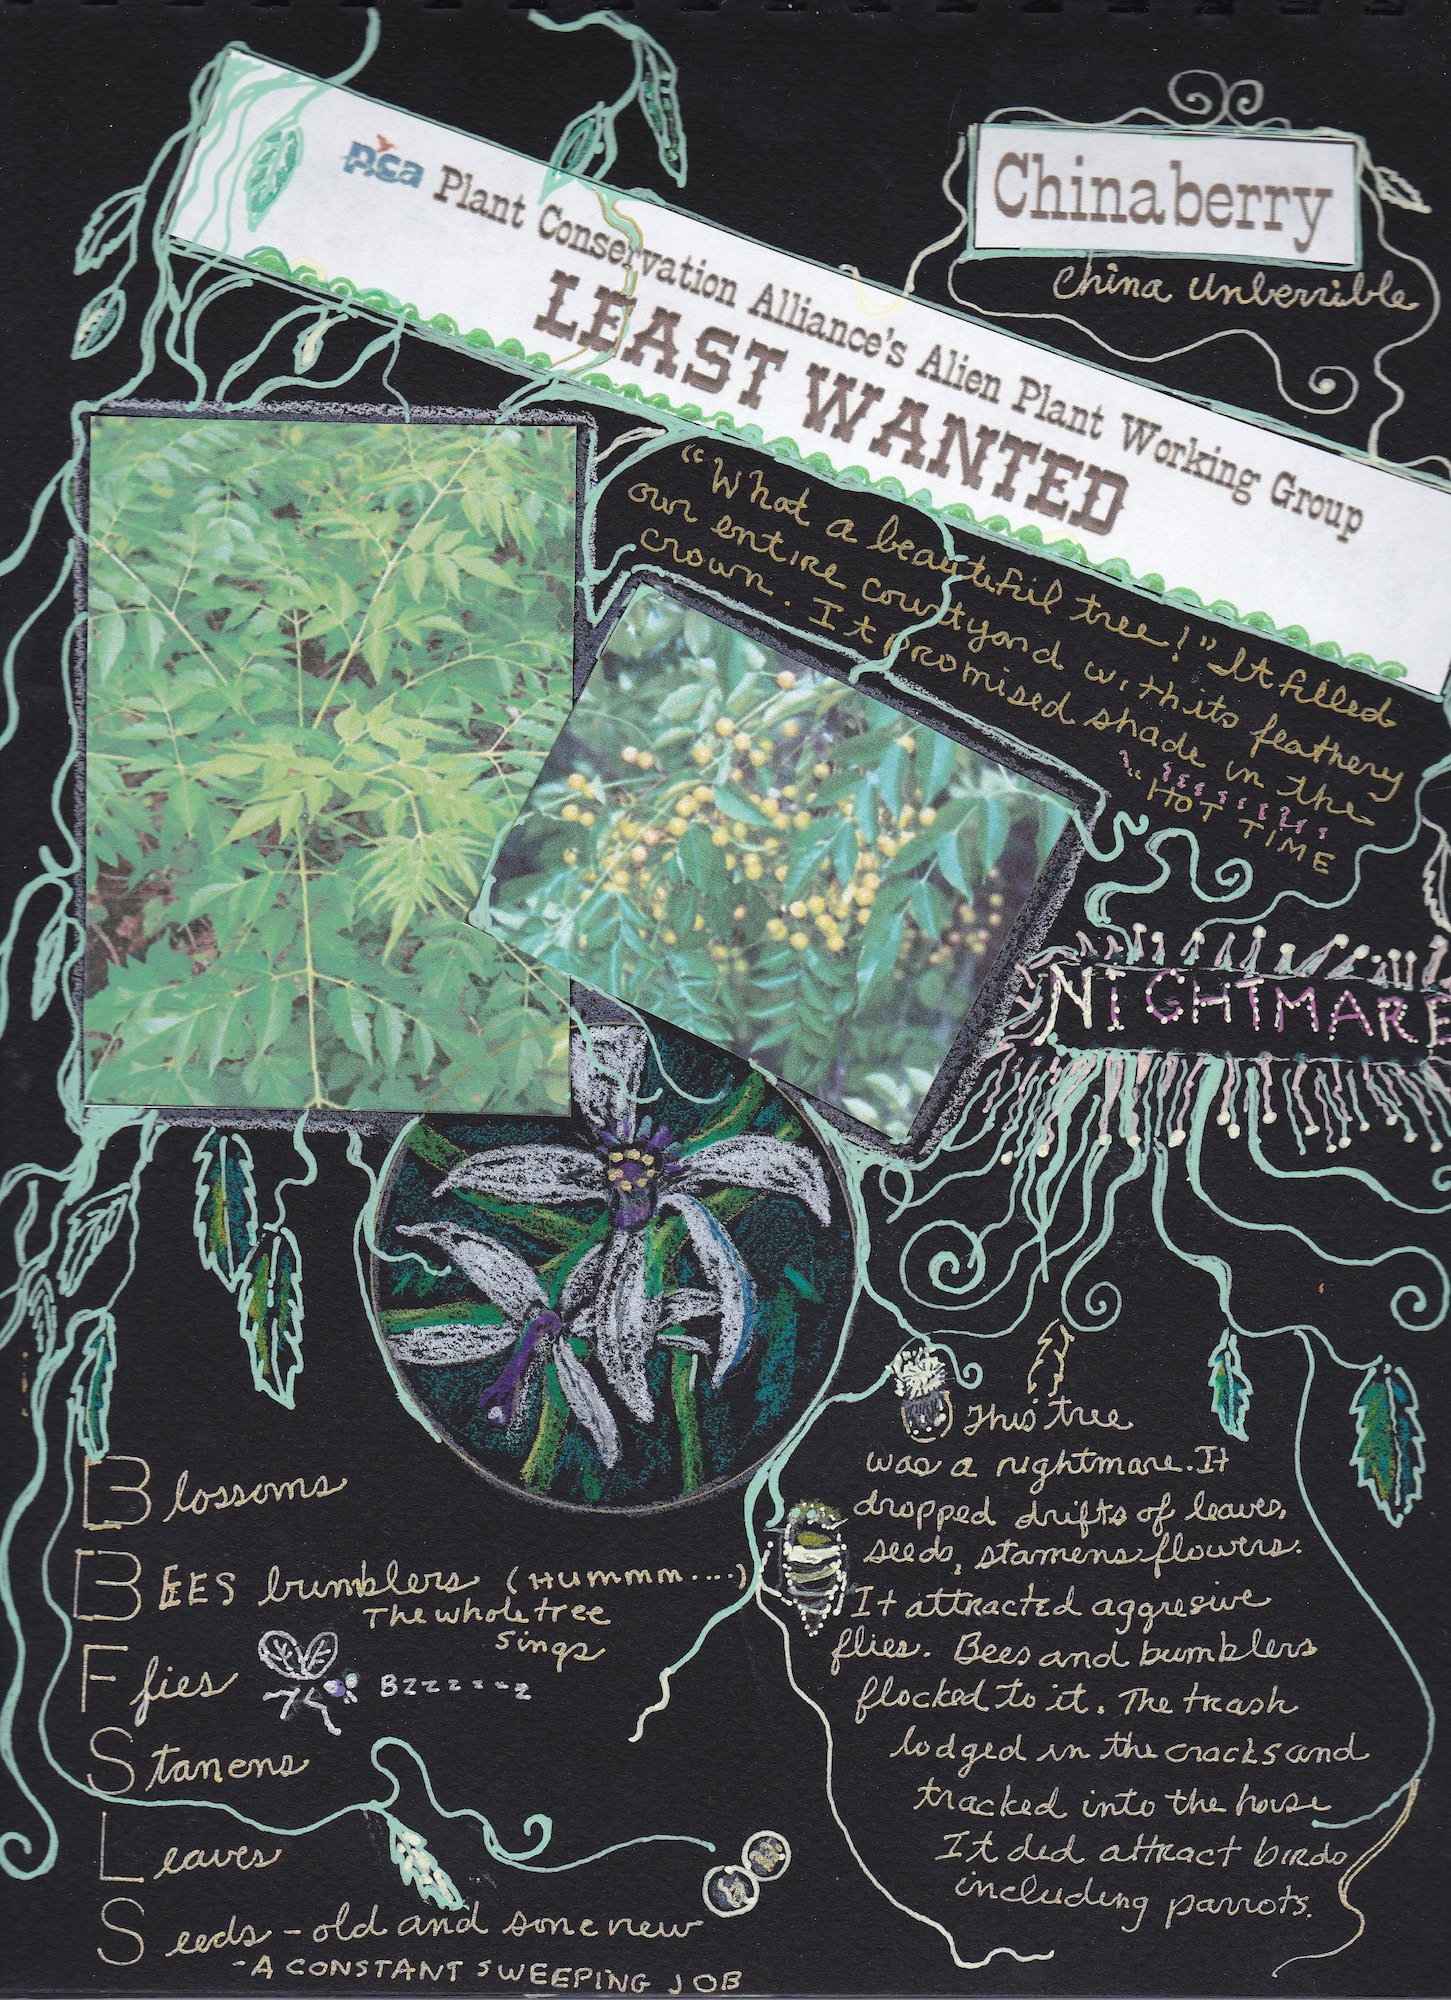 pca Plant Conservation Alliance's Alien Plant Working Group
LEAST WANTED
Chinaberry
China Unberrible
"What a beautiful tree!" It filled
our entire courtyard with its feathery
crown. It promised shade in the
"HOT TIME
NIGHTMARE
This tree
was a nightmare. It
dropped drifts of leaves,
seeds, stamens flowers.
It attracted aggresive
flies. Bees and bumblers
flocked to it. The trash
lodged in the cracks and
tracked into the house
It did attract birds
including parrots.
Blossoms
BEES bumblers (HUMMM....)
The whole tree
sings
Flies Bzzzzzz
Stamens
Leaves
Seeds - old and some new
- A CONSTANT SWEEPING JOB